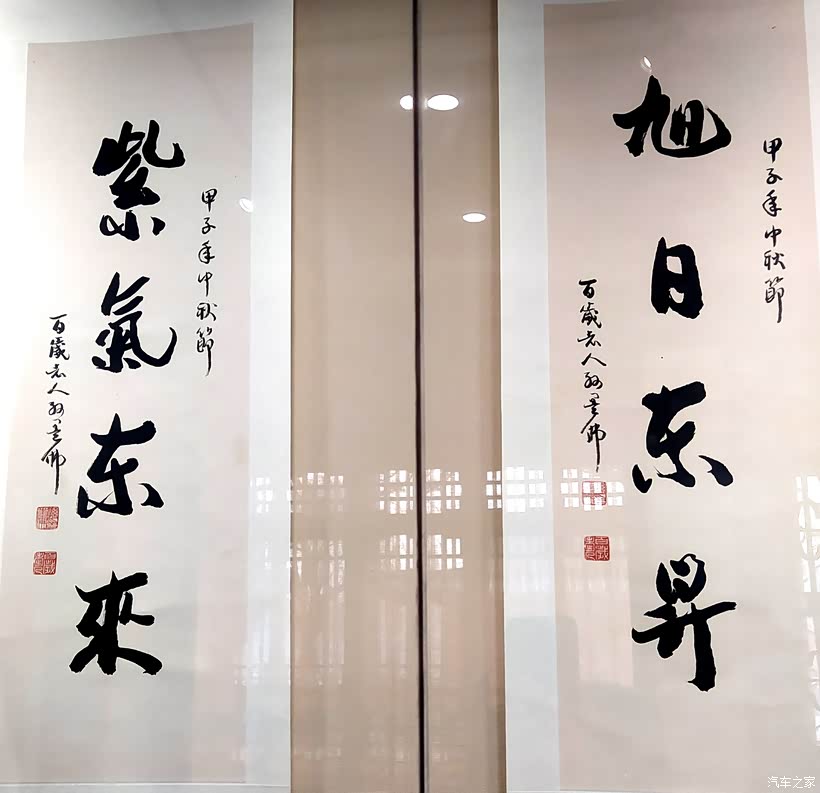 甲子年中秋節
旭日东昇
百歲老人孫墨佛
甲子年中秋節
紫氣东來
百歲老人孫墨佛
汽车之家